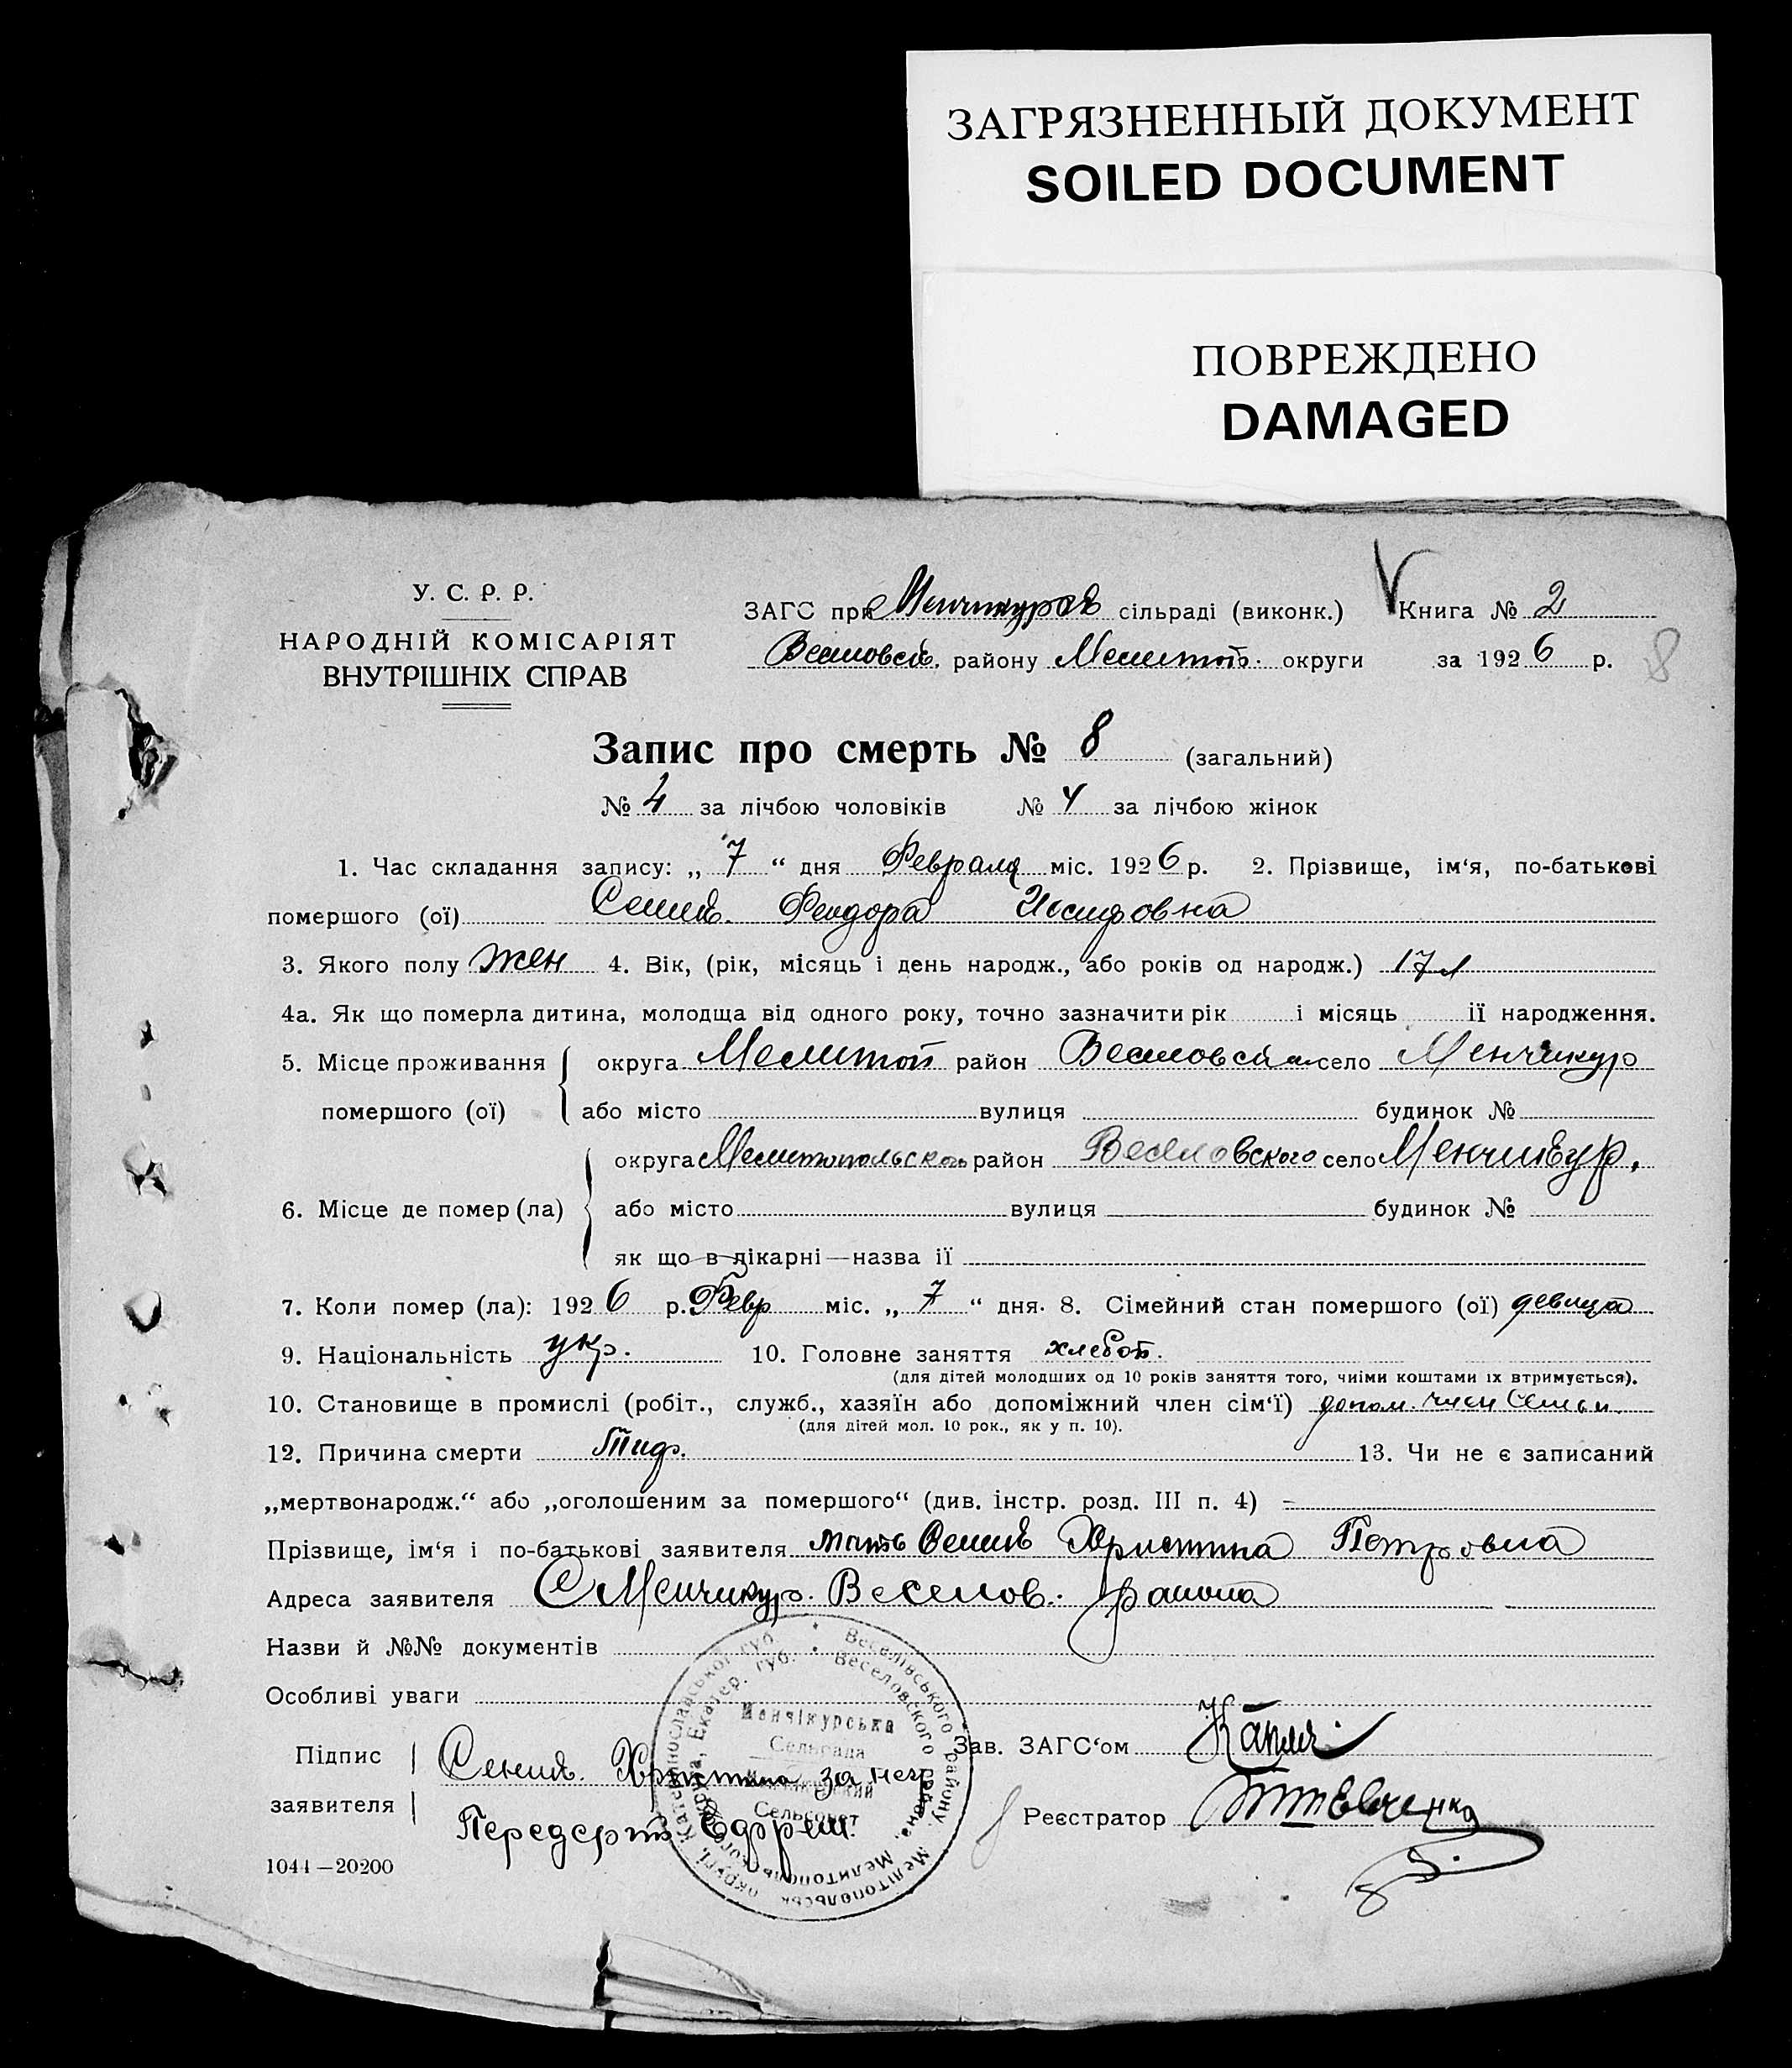 ЗАГРЯЗНЕННЫЙ ДОКУМЕНТ
SOILED DOCUMENT
ПОВРЕЖДЕНО
DAMAGED
У. С. Р. Р.
НАРОДНІЙ КОМІСАРІЯТ
ВНУТРІШНІХ СПРАВ
ЗАГС при Менчикурск сільраді (виконк.) Книга № 2
Веселовск. району Мелитоп. округи за 1926 р.
8
Запис про смерть № 8 (загальний)
№ 4 за лічбою чоловіків № 4 за лічбою жінок
1. Час складання запису: „ 7 “ дня Февраля міс. 1926 р. 2. Прізвище, ім‘я, по-батькові
помершого (ої) Феодора Иосифовна
3. Якого полу жен 4. Вік, (рік, місяць і день народж., або років од народж.) 17 л
4а. Як що померла дитина, молодща від одного року, точно зазначити рік і місяць її народження.
5. Місце проживання округа Мелитоп район Веселовск село Менчикур
помершого (ої) або місто вулиця будинок №
округа Мелитопольского район Веселовского село Менчикур.
6. Місце де помер (ла) або місто вулиця будинок №
як що в лікарні—назва ії
7. Коли помер (ла): 1926 р. Февр міс. „ 7 “ дня. 8. Сімейний стан помершого (ої) девица
9. Національність укр. 10. Головне заняття хлебоп.
(для дітей молодших од 10 років заняття того, чиїми коштами їх втримується).
10. Становище в промислі (робіт., служб., хазяїн або допоміжний член сім‘ї) допом. член семьи
(для дітей мол. 10 рок., як у п. 10).
12. Причина смерти Тиф. 13. Чи не є записаний
„мертвонародж.“ або „оголошеним за помершого“ (див. інстр. розд. III п. 4) –
Прізвище, ім‘я і по-батькові заявителя мать Христина Петровна
Адреса заявителя С Менчикур. Веселов. района
Назви й №№ документів
Особливі уваги
Підпис Христина за нея Зав. ЗАГС‘ом
заявителя Передерий Ефрем. Реєстратор Шевченко
Менчікурська
Сельрада
Сельсовет
1044—20200